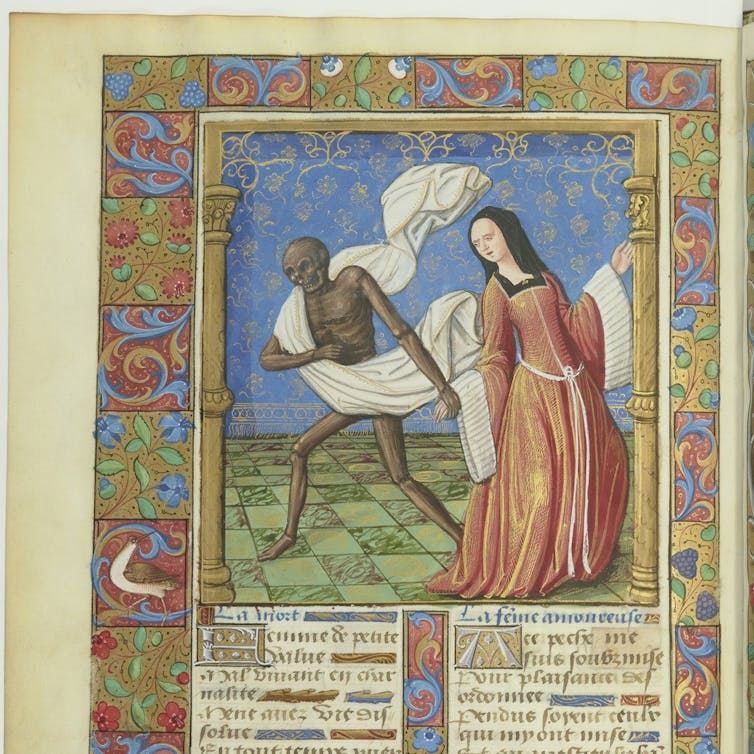 La mort
Femme de petite
Value
Mal viuant en char
nalite
Mene auez vie dis
solue
En tout temps yuer
La fēme amoureuse
A ce peche me
suis soubzmise
Pour plaisance des
ordonnee
Pendus soyent ceulx
qui my ont mise